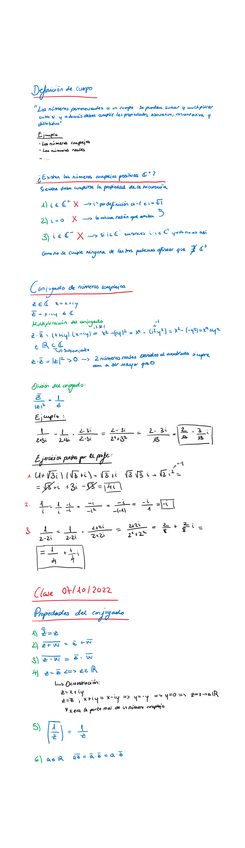 Definición de cuerpo
"Los números pertenecientes a un cuerpo se pueden sumar y multiplicar
entre sí y además deben cumplir las propiedades asociativa, conmutativa y
distributiva"
Ejemplo
- Los números complejos
- Los números reales
- ...
¿Existen los números complejos positivos ℂ⁺?
1) i ∈ ℂ⁺ X → i² por definición
2) i = 0 X
3) i ∈ ℂ⁻ X → Si i ∈ ℂ⁻ entonces -i ∈ ℂ⁺
Como no se cumple ninguna de las tres podemos afirmar que ∄ ℂ⁺
Conjugado de números complejos
z ∈ ℂ z = x+iy
z̄ = x-iy ∈ ℂ
Multiplicación del conjugado
z · z̄ = (x+iy)(x-iy) = x² - (iy)² = x² - (i²y²) = x² - (-y²) = x² + y²
∈ ℝ ⊆ ℂ
z · z̄ = |z|² > 0 → 2 números reales elevados al cuadrado siempre
van a ser mayor que 0
División del conjugado:
z̄/|z|² = 1/z
Ejemplo:
1/(2+3i) = 1/(2+3i) · (2-3i)/(2-3i) = (2-3i)/(2²+3²) = (2-3i)/13 = 2/13 - 3/13 i
Ejercicios puestos por la profe:
1. (1+√3i)(√3+i) = √3+i+√3√3i+√3i² =
= √3+i+3i-√3 = 4i
2. 1/i = 1/i · -i/-i = -i/-i² = -i/-(-1) = -i/1 = -i
3. 1/(2-2i) = 1/(2-2i) · (2+2i)/(2+2i) = (2+2i)/(2²+2²) = 2/8 + 2/8 i =
= 1/4 + 1/4 i
Clase 04/10/2022
Propiedades del conjugado
2) z+w = z̄ + w̄
3) z·w = z̄ · w̄
4) z = z̄ <=> z ∈ ℝ
↳ Demostración:
z = x+iy
z = z̄, x+iy = x-iy => y = -y => y = 0 => z = x ∈ ℝ
* x es la parte real de un número complejo
5) (1/z) = 1/z̄
6) a ∈ ℝ